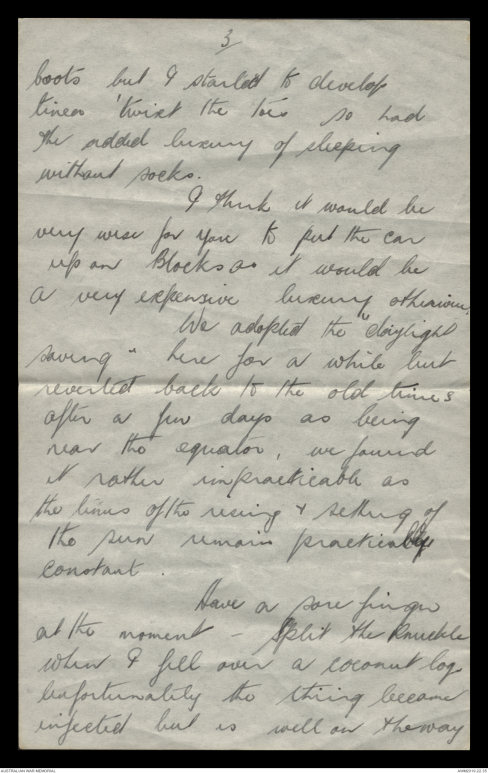 3
boots but I started to develop
tinea 'twixt the toes so had
the added luxury of sleeping
without socks.
I think it would be
very wise for you to put the car
up on Blocks as it would be
a very expensive luxury otherwise.
We adopted the "daylight
saving" here for a while but
reverted back to the old times
after a few days as being
near the equator, we found
it rather impracticable as
the times of the rising & setting of
the sun remain practically
constant.
Have a sore finger
at the moment - Split the knuckle
when I fell over a coconut log.
Unfortunately the thing became
infected but is well on the way
AUSTRALIAN WAR MEMORIAL